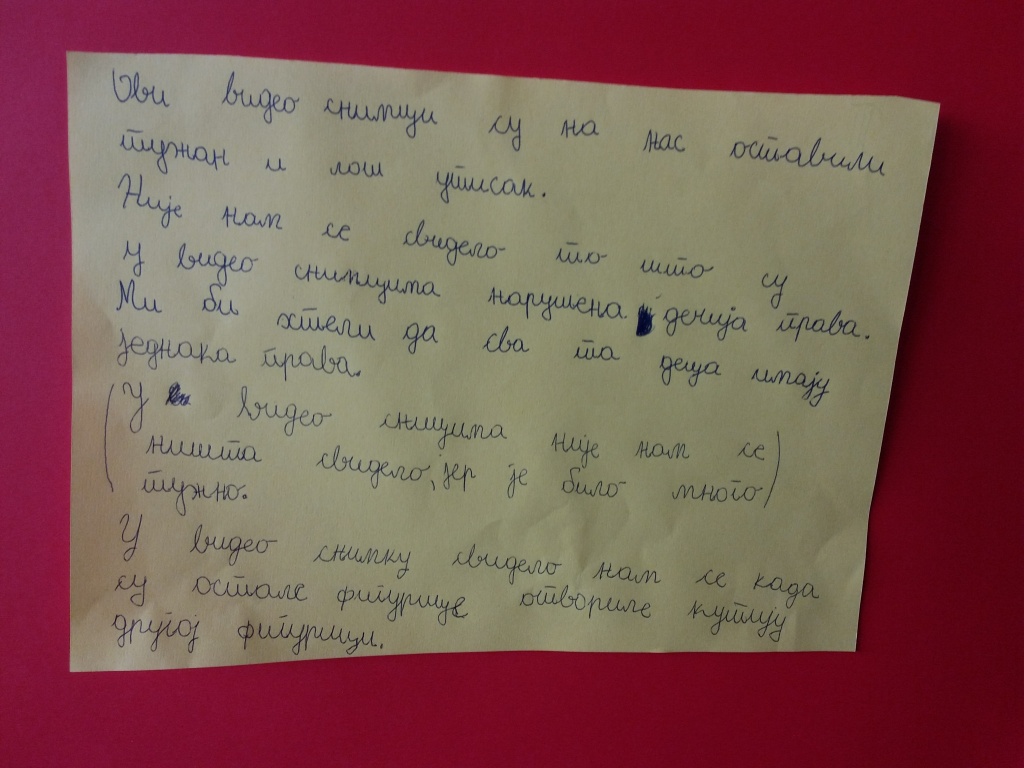 Ови видео снимци су на нас оставили
тужан и лош утисак.
Није нам се свидело то што су
у видео снимцима нарушена дечија права.
Ми би хтели да сва та деца имају
једнака права.
(У видео сницима није нам се
ништа свидело, јер је било много)
тужно.
У видео снимку свидело нам се када
су остале фигурице отвориле кутију
другој фигурици.